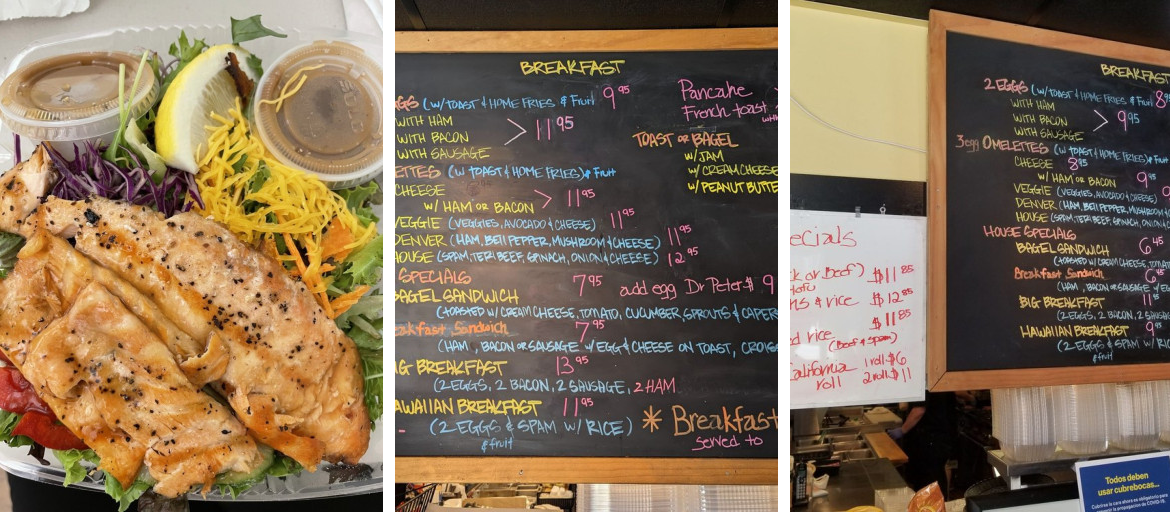 BREAKFAST
GGS (W/TOAST & HOME FRIES & Fruit 9 95
WITH HAM
WITH BACON > 11 95
WITH SAUSAGE
ETTES (W/ TOAST & HOME FRIES) & Fruit
CHEESE
W/ HAM OR BACON > 11 95
VEGGIE (VEGGIES, AVOCADO & CHEESE) 11 95
DENVER (HAM, BELL PEPPER, MUSHROOM & CHEESE) 11 95
HOUSE (SPAM, TERI BEEF, SPINACH, ONION & CHEESE) 12 95
SPECIALS
BAGEL SANDWICH 7 95 add egg
(TOASTED W/ CREAM CHEESE, TOMATO, CUCUMBER, SPROUTS & CAPERS
eakfast Sandwich 7 95
(HAM, BACON OR SAUSAGE W/ EGG & CHEESE ON TOAST, CROISS
IG BREAKFAST 13 95
(2 EGGS, 2 BACON, 2 SAUSAGE, 2 HAM
AWAIIAN BREAKFAST 11 95
(2 EGGS & SPAM W/ RICE)
& fruit
Pancake
French toast
TOAST OR BAGEL
W/ JAM
W/ CREAM CHEESE
W/ PEANUT BUTTE
* Breakfast
served to
BREAKFAST
2 EGGS (W/ TOAST & HOME FRIES & Fruit 8
WITH HAM
WITH BACON > 9 95
WITH SAUSAGE
3 egg OMELETTES (W/ TOAST & HOME FRIES) & Fruit
CHEESE 8 95
W/ HAM OR BACON 9 95
VEGGIE (VEGGIES, AVOCADO & CHEESE) 9
DENVER (HAM, BELL PEPPER, MUSHROOM
HOUSE (SPAM, TERI BEEF, SPINACH, ONION &
HOUSE SPECIALS
BAGEL SANDWICH 6 45
(TOASTED W/ CREAM CHEESE, TOMAT
Breakfast Sandwich 6
(HAM, BACON OR SAUSAGE W/ EG
BIG BREAKFAST 11
(2 EGGS, 2 BACON, 2 SAUS
HAWAIIAN BREAKFAST 9
(2 EGGS & SPAM W/ RI
& fruit
ecials
ck or Beef) $11 85
tofu
ns & rice $12 85
$11 85
ed rice
(Beef & Spam)
alifornia 1 roll $6
roll 2 roll $11
Todos deben
usar cubrebocas...